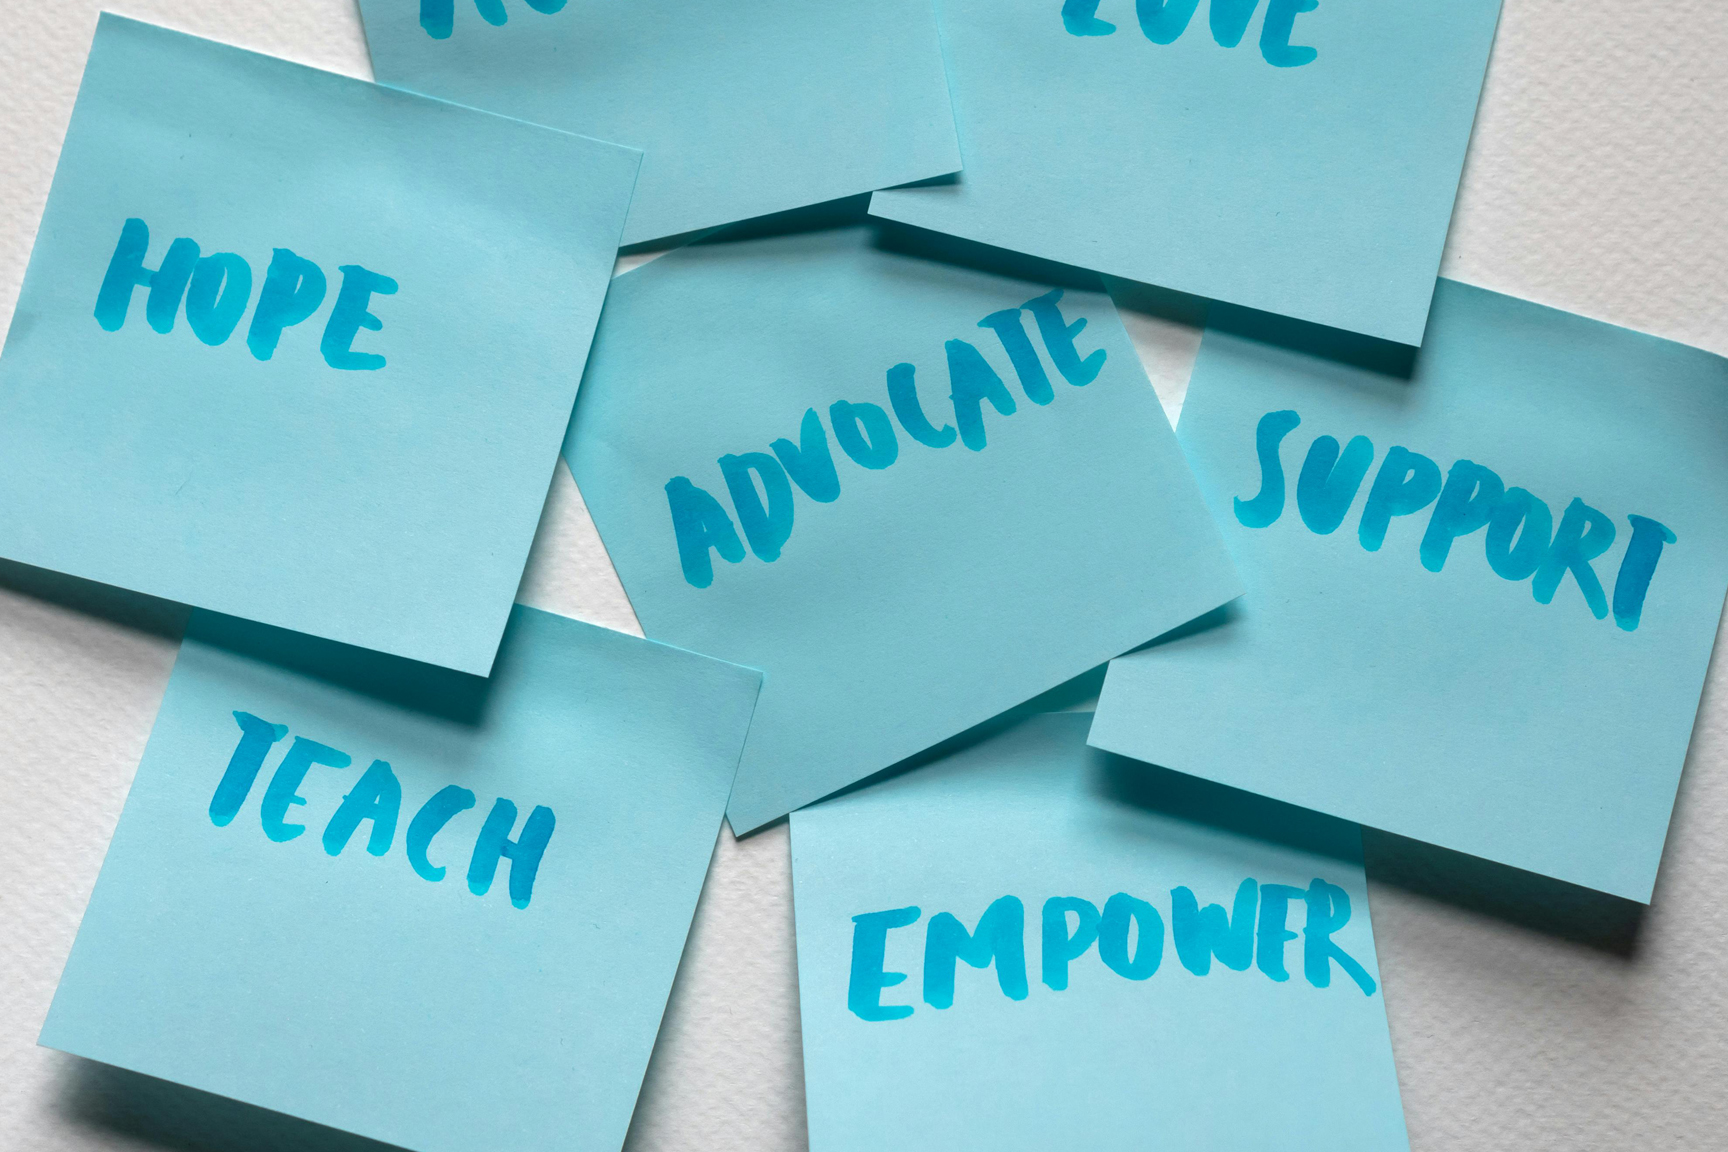 LOVE
HOPE
ADVOCATE
SUPPORT
TEACH
EMPOWER